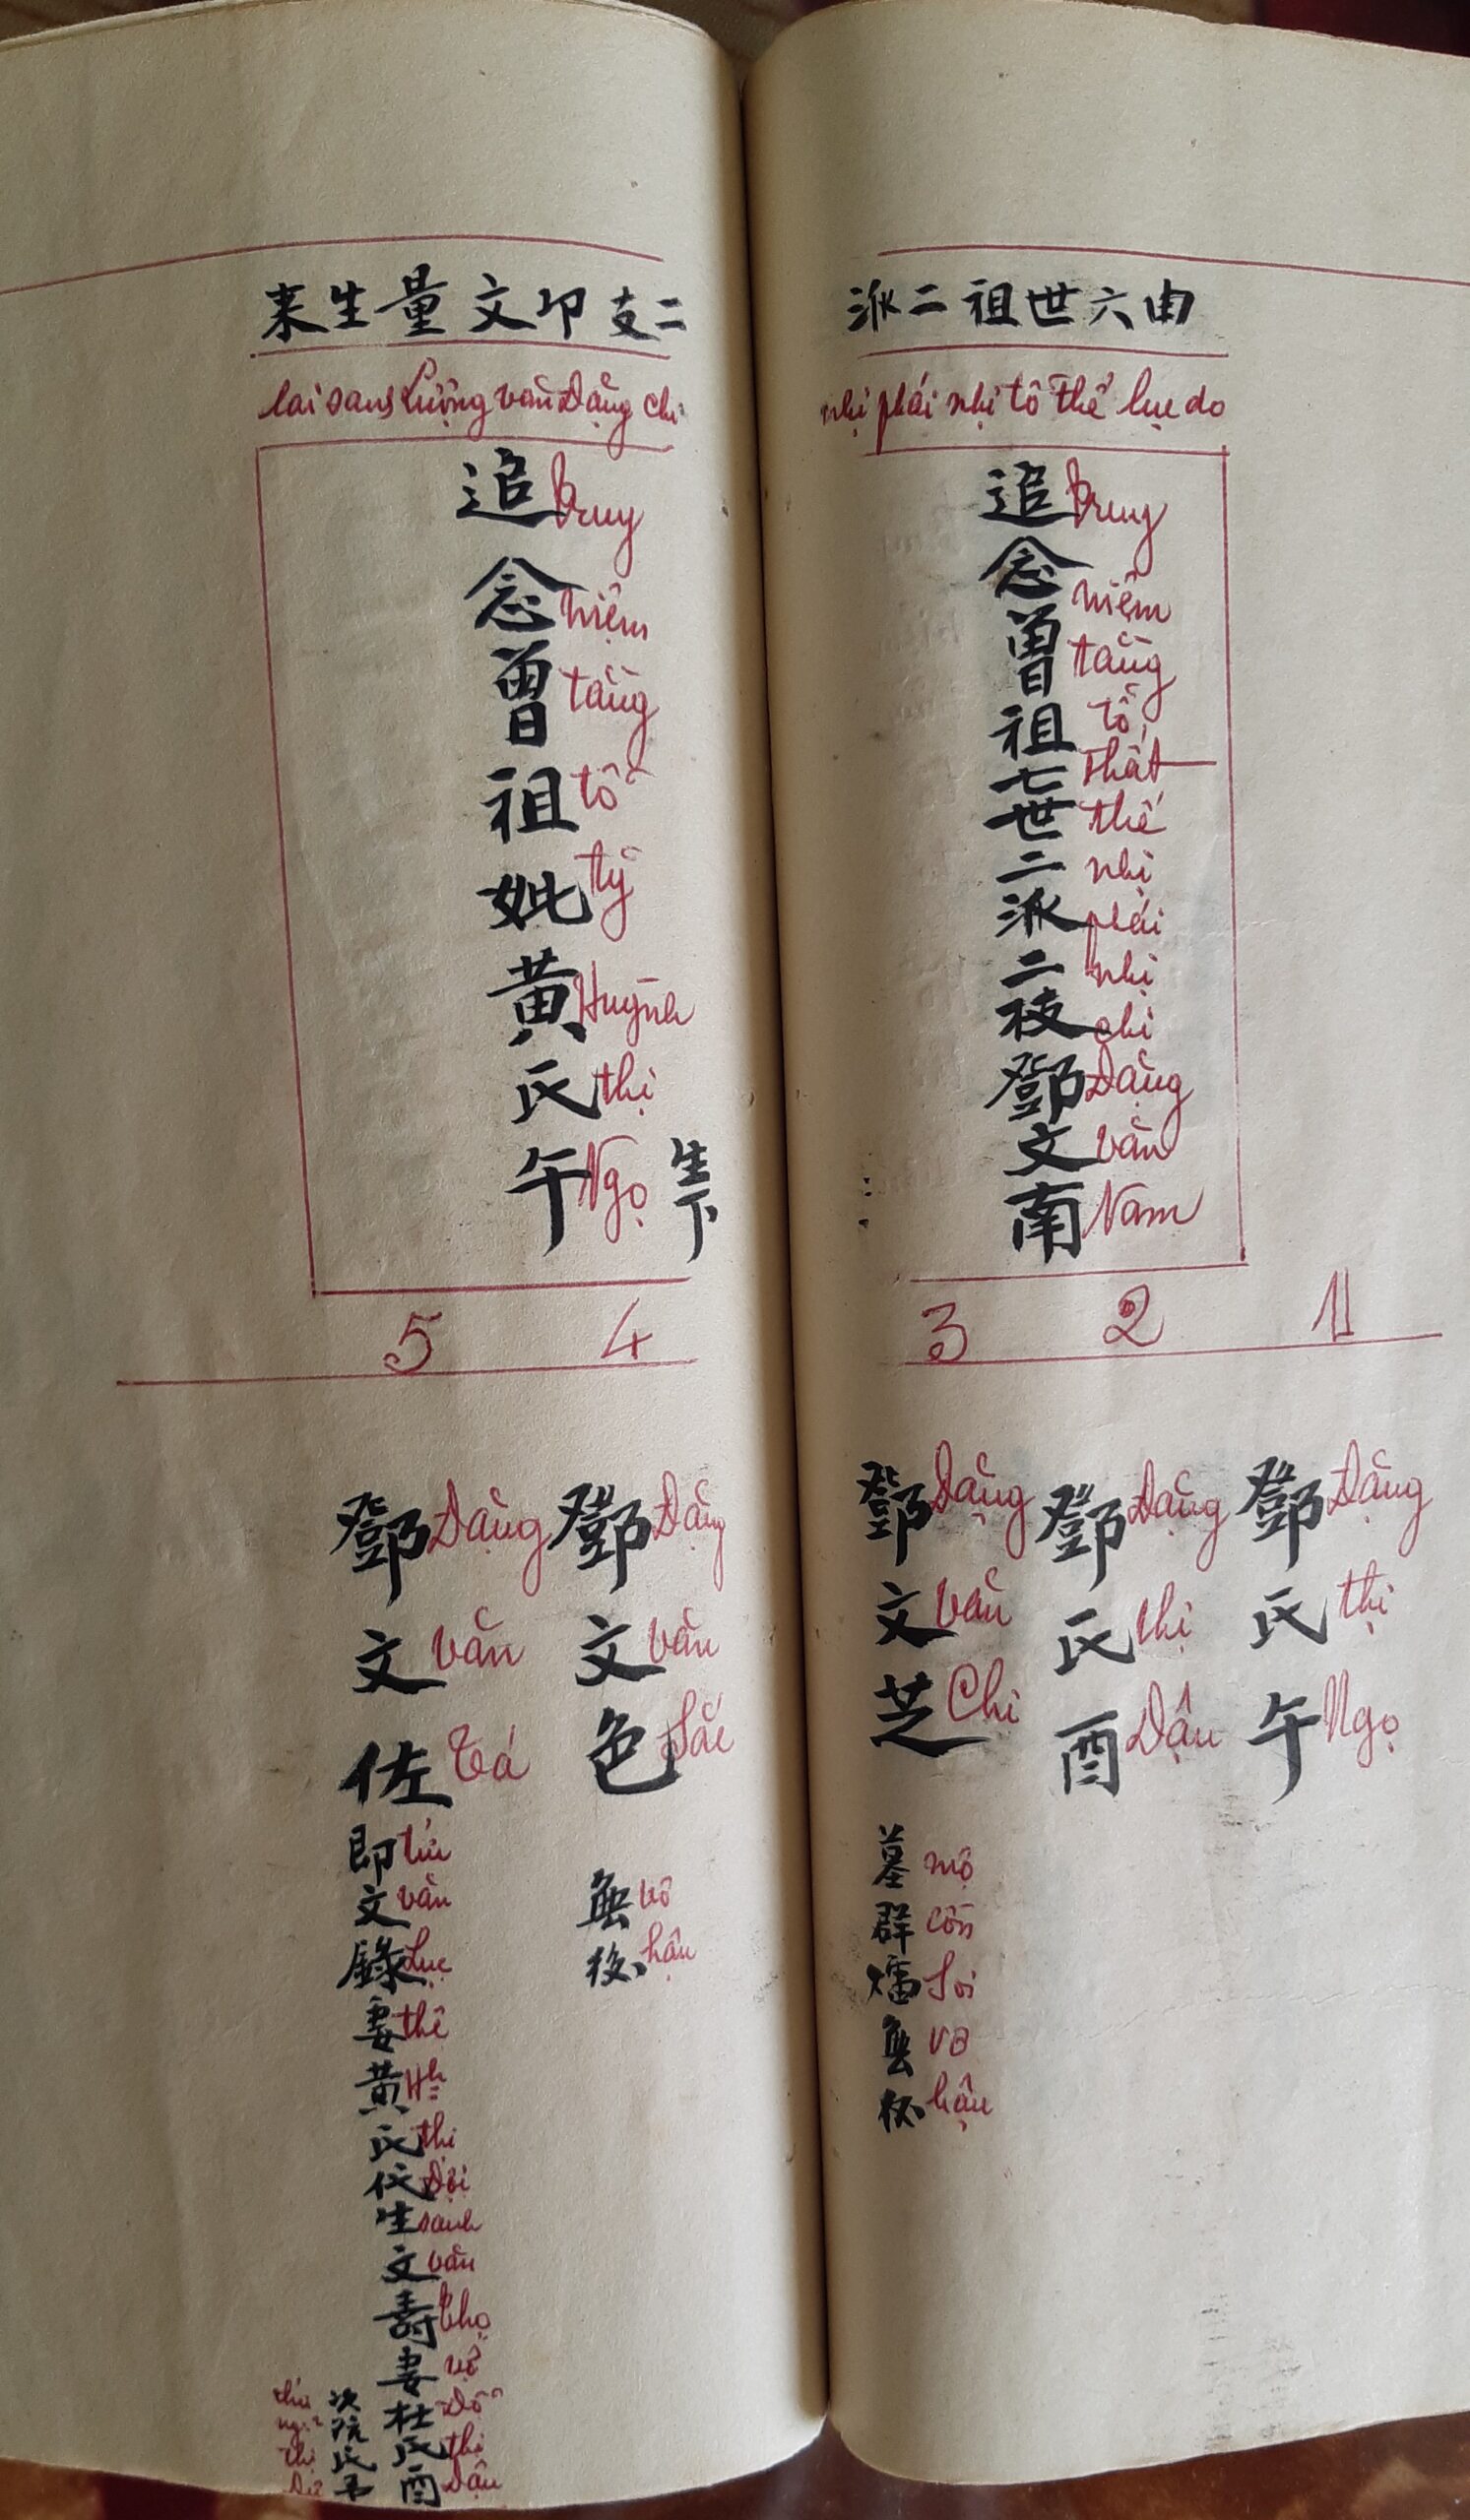 由六世祖二派
nhị phái nhị tổ thế lục do
二支卬文量生来
lai sanh Lượng văn Đặng chi
追 truy
念 niệm
曾 tằng
祖 tổ
七 thất
世 thế
二 nhị
派 phái
二 nhị
枝 chi
鄧 Đặng
文 văn
南 Nam
追 truy
念 niệm
曾 tằng
祖 tổ
妣 tỷ
黃 Huỳnh
氏 thị
午 Ngọ
生下
1
2
3
4
5
鄧 Đặng
氏 thị
午 Ngọ
鄧 Đặng
氏 thị
酉 Dậu
鄧 Đặng
文 văn
芝 Chi
墓 mộ
群 còn
soi
無 vô
後 hậu
鄧 Đặng
文 văn
色 Sắc
無 vô
後 hậu
鄧 Đặng
文 văn
佐 Tá
即 tức
文 văn
錄 Lục
妻 thê
黃 Hh
氏 thị
代 Đội
生 sanh
文 văn
壽 Thọ
妻 vợ
杜 Đỗ
氏 thị
酉 Dậu
次 thứ
阮
氏 thị